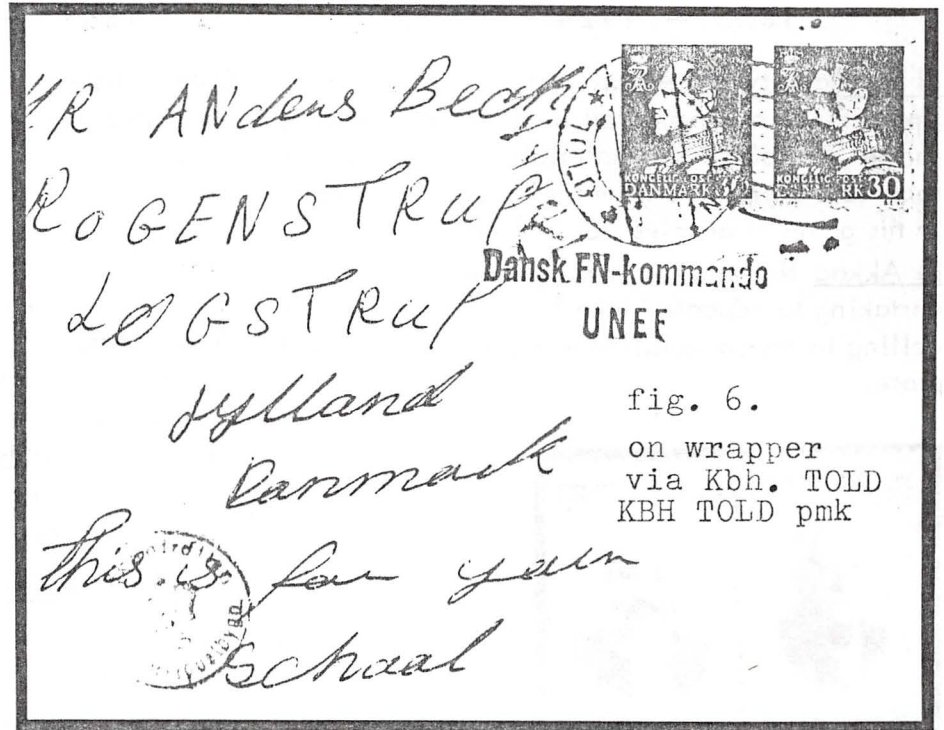 MR ANders Beck
ROGENSTRUP
LØGSTRUP
Jylland
Danmark
this is for your
school
TOLD
KONGELIG POST
DANMARK 30
KONGELIG POST
DANMARK 30
Dansk FN-kommando
UNEF
fig. 6.
on wrapper
via Kbh. TOLD
KBH TOLD pmk